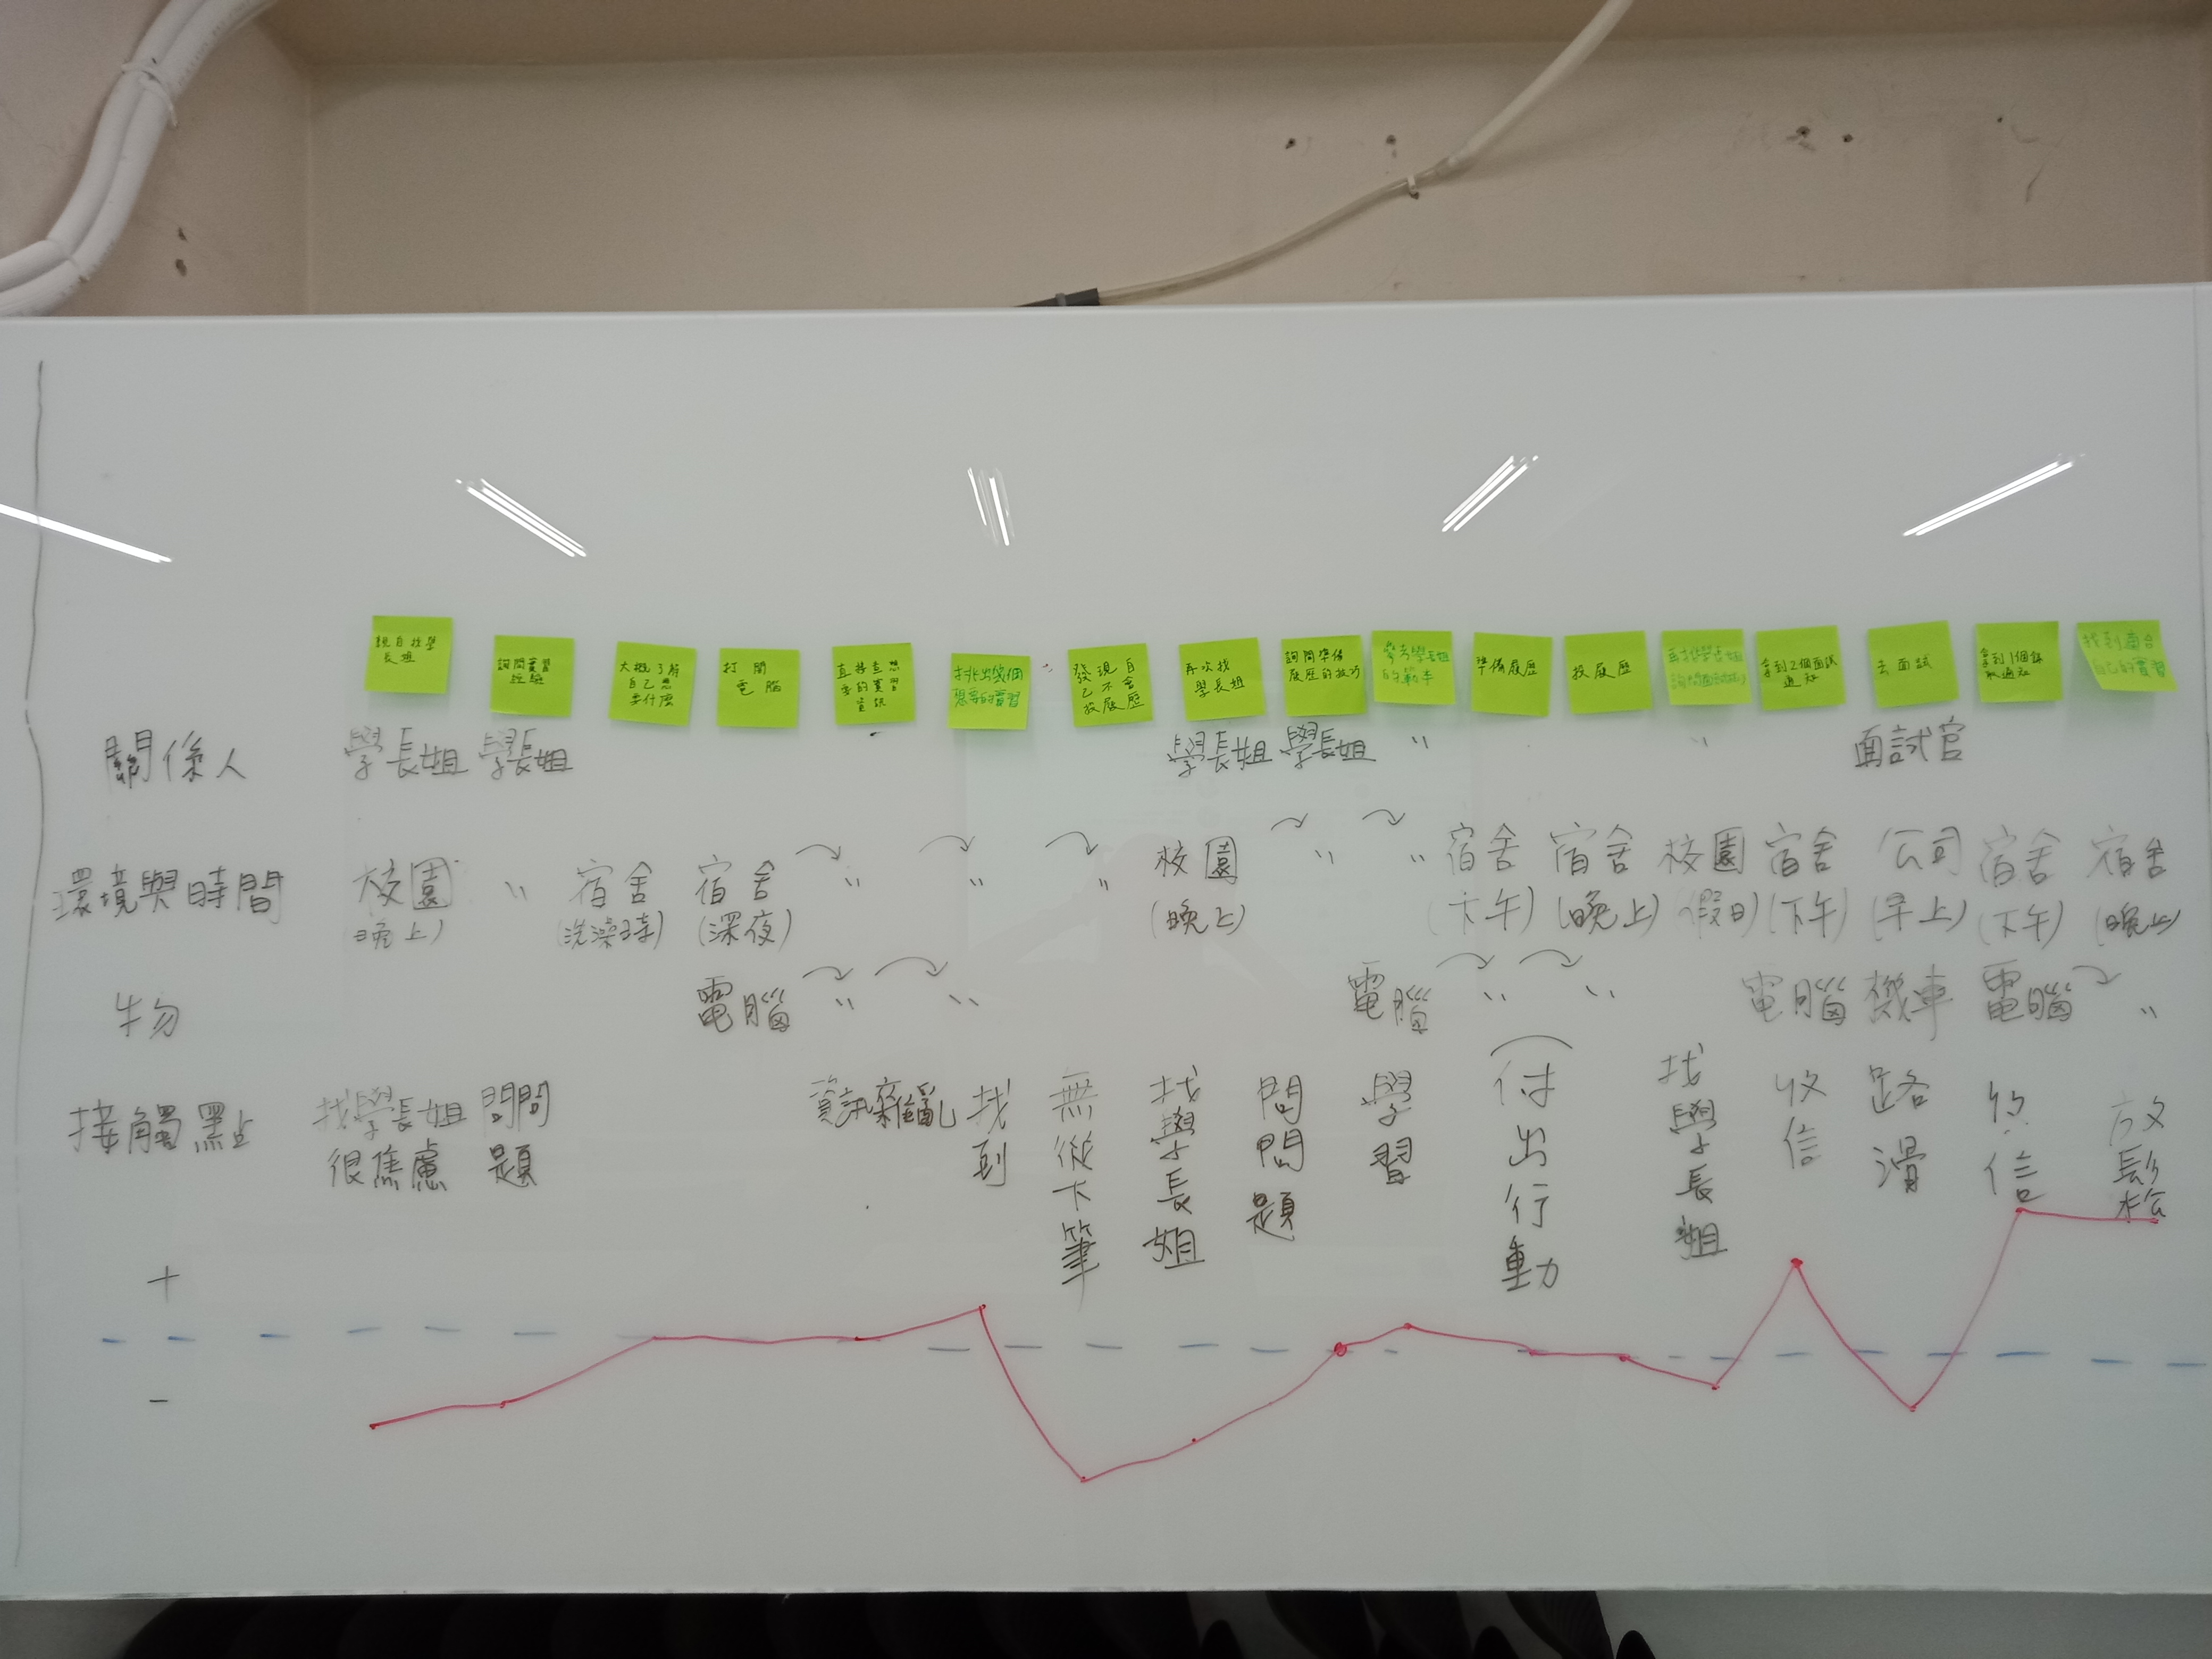 親自找學
長姐
詢問實習
經驗
大概了解
自己想
要什麼
打開
電腦
直接查想
要的實習
資訊
挑出幾個
想要的實習
發現自
己不會
投履歷
再次找
學長姐
詢問準備
履歷的技巧
參考學長姐
的範本
準備履歷
投履歷
再找學長姐
拿到2個面試
通知
去面試
拿到1個錄
取通知
找到適合
自己的實習
關係人 學長姐 學長姐 學長姐 學長姐 〃 〃 面試官
環境與時間 校園 〃 宿舍 宿舍 〃 〃 〃 校園 〃 〃 宿舍 宿舍 校園 宿舍 公司 宿舍 宿舍
(晚上) (洗澡時) (深夜) (晚上) (下午) (晚上) (假日) (下午) (早上) (下午) (晚上)
物 電腦 〃 〃 電腦 〃 〃 電腦 機車 電腦 〃
接觸點
找學長姐
很焦慮
問問
題
資訊雜亂
找到
無從下筆
找學長姐
問問題
學習
付出行動
找學長姐
收信
路滑
收信
放鬆
+
-